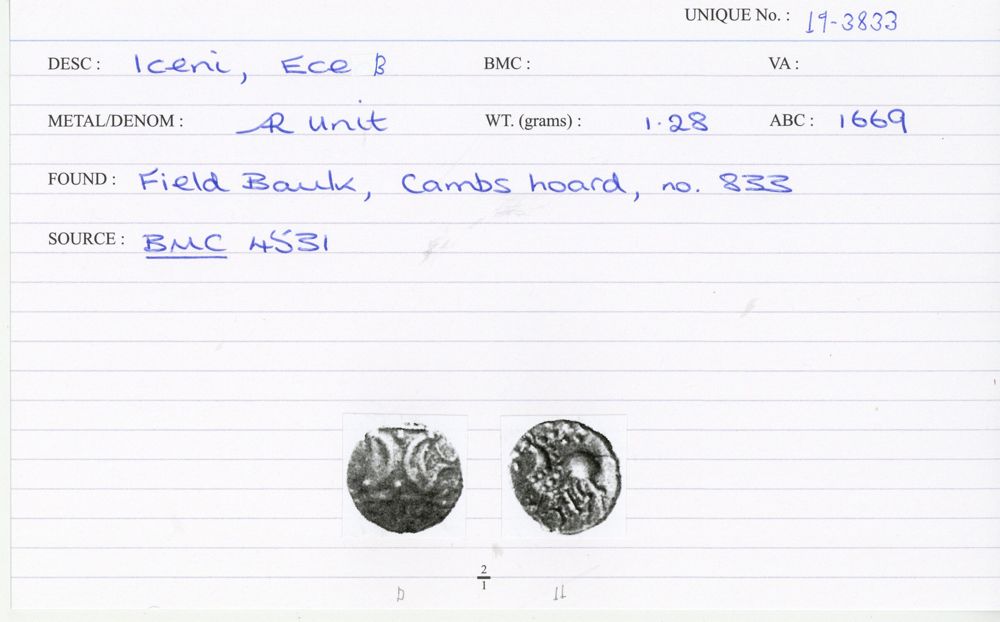 UNIQUE No. : 19-3833
DESC : Iceni, Ece B BMC : VA :
METAL/DENOM : AR unit WT. (grams) : 1.28 ABC : 1669
FOUND : Field Baulk, Cambs hoard, no. 833
SOURCE : BMC 4531
2
1